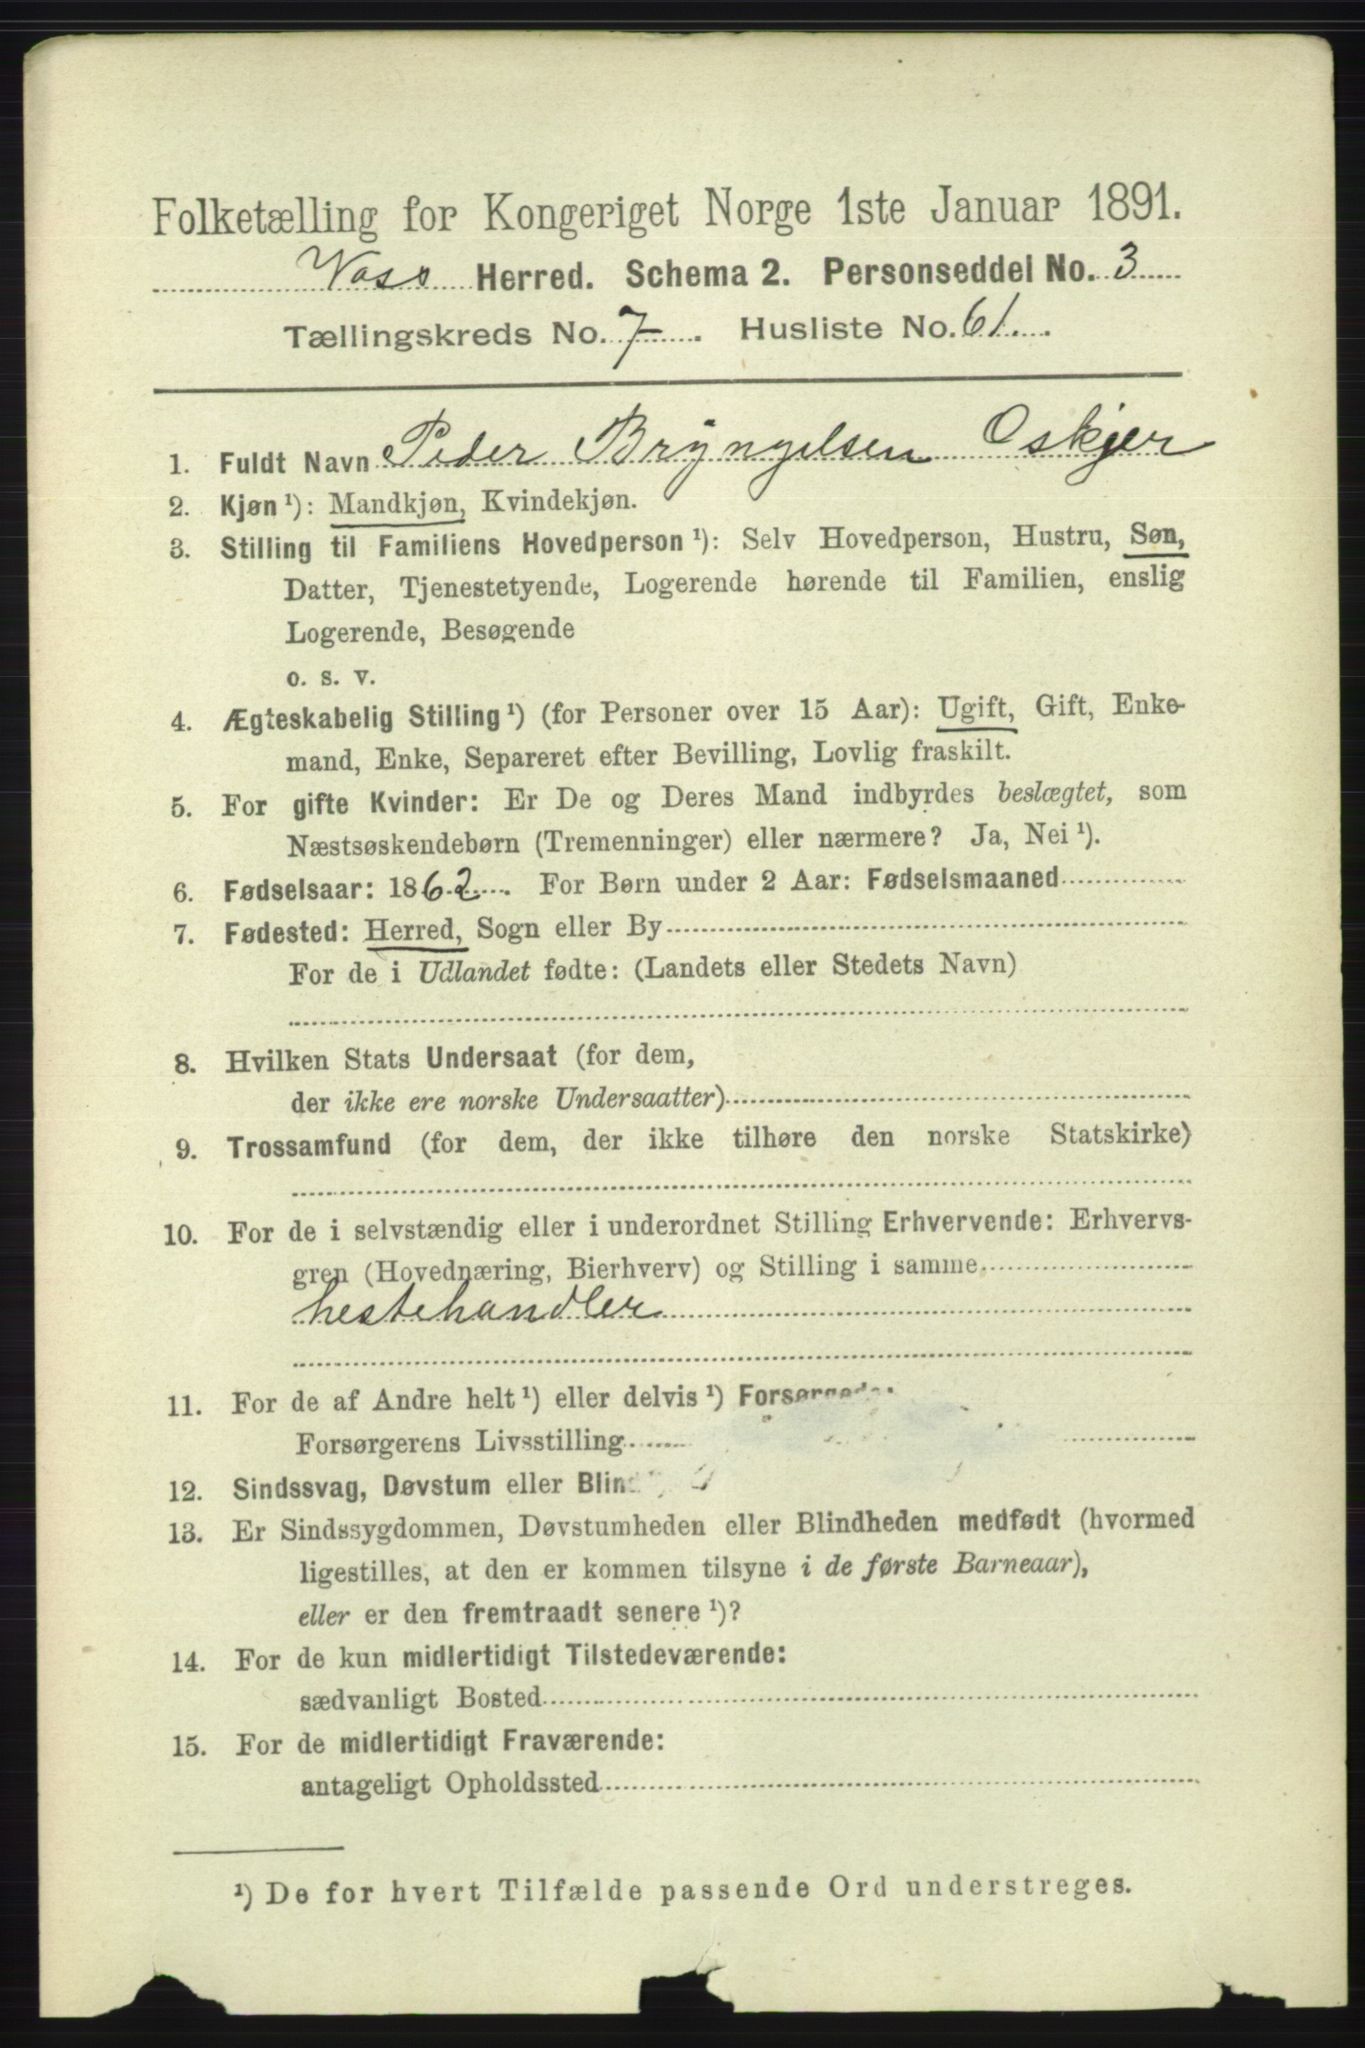 Folketælling for Kongeriget Norge 1ste Januar 1891.
Voss Herred. Schema 2. Personseddel No. 3
Tællingskreds No. 7. Husliste No. 61.
1. Fuldt Navn Peder Bryngelsen Oskjer
2. Kjøn ¹): Mandkjøn, Kvindekjøn.
3. Stilling til Familiens Hovedperson ¹): Selv Hovedperson, Hustru, Søn,
Datter, Tjenestetyende, Logerende hørende til Familien, enslig
Logerende, Besøgende
o. s. v.
4. Ægteskabelig Stilling ¹) (for Personer over 15 Aar): Ugift, Gift, Enke-
mand, Enke, Separeret efter Bevilling, Lovlig fraskilt.
5. For gifte Kvinder: Er De og Deres Mand indbyrdes beslægtet, som
Næstsøskendebørn (Tremenninger) eller nærmere? Ja, Nei ¹).
6. Fødselsaar: 1862. For Børn under 2 Aar: Fødselsmaaned
7. Fødested: Herred, Sogn eller By
For de i Udlandet fødte: (Landets eller Stedets Navn)
8. Hvilken Stats Undersaat (for dem,
der ikke ere norske Undersaatter)
9. Trossamfund (for dem, der ikke tilhøre den norske Statskirke)
10. For de i selvstændig eller i underordnet Stilling Erhvervende: Erhvervs-
gren (Hovednæring, Bierhverv) og Stilling i samme
hestehandler
11. For de af Andre helt ¹) eller delvis ¹) Forsørgede:
Forsørgerens Livsstilling
12. Sindssvag, Døvstum eller Blind
13. Er Sindssygdommen, Døvstumheden eller Blindheden medfødt (hvormed
ligestilles, at den er kommen tilsyne i de første Barneaar),
eller er den fremtraadt senere ¹)?
14. For de kun midlertidigt Tilstedeværende:
sædvanligt Bosted
15. For de midlertidigt Fraværende:
antageligt Opholdssted
¹) De for hvert Tilfælde passende Ord understreges.